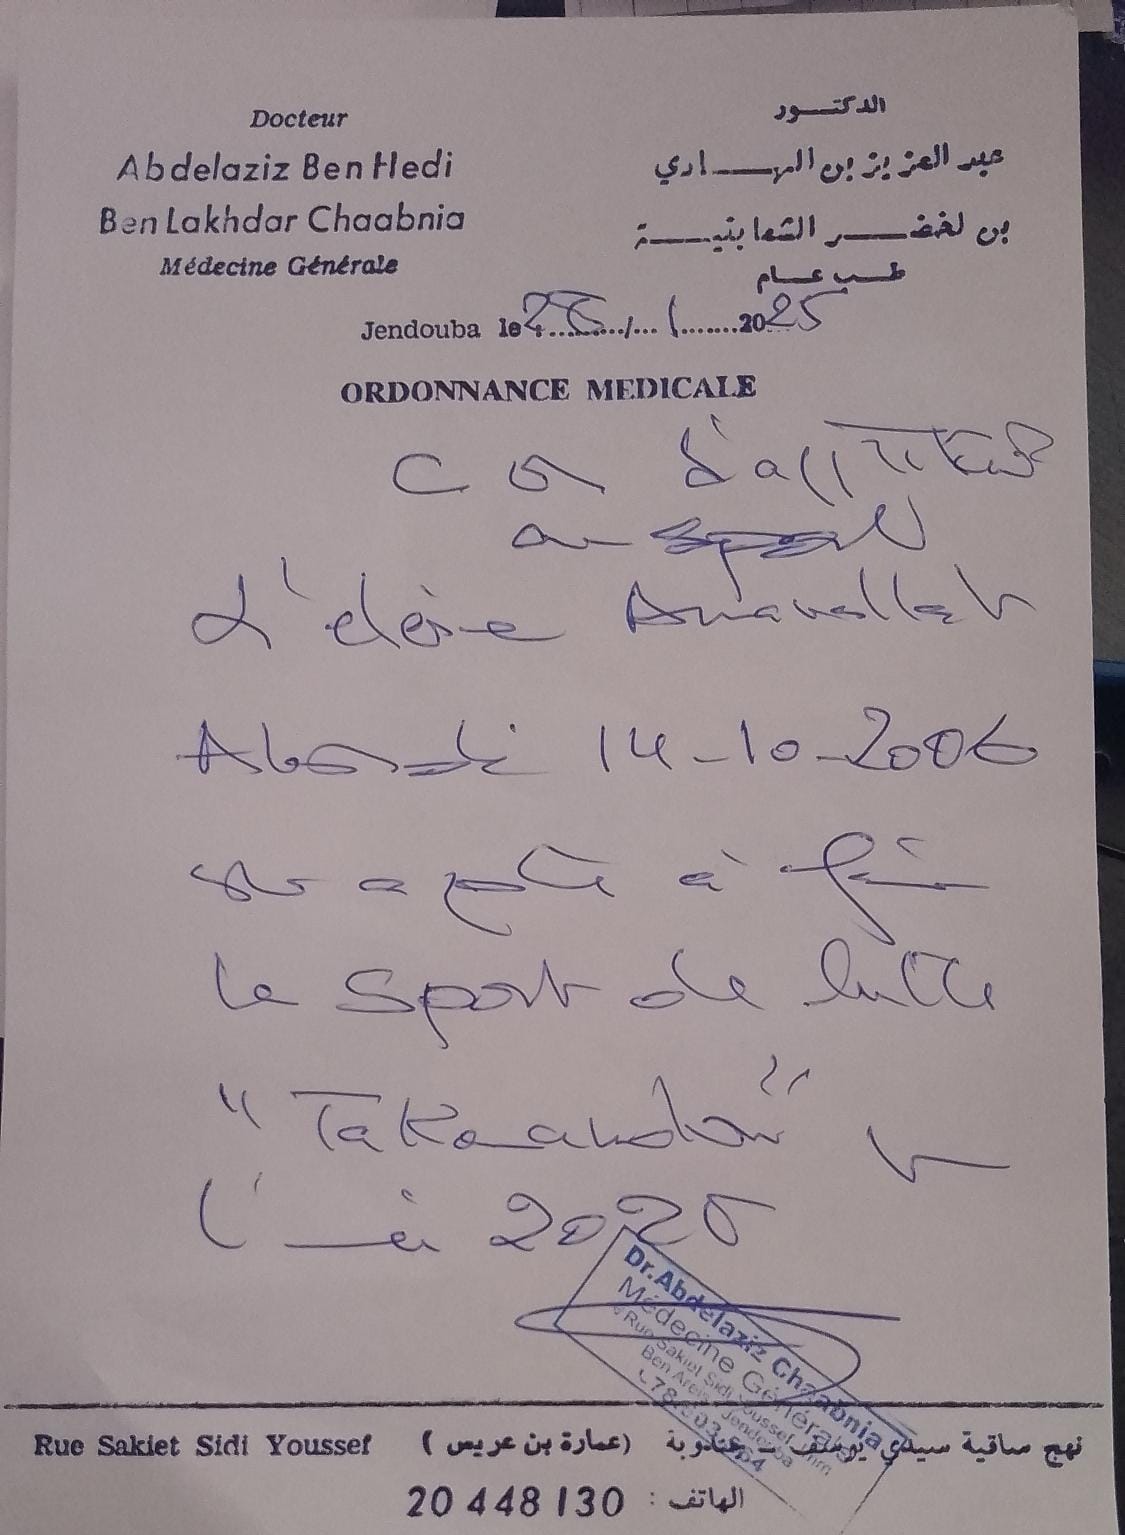 Docteur
Abdelaziz Ben Hedi
Ben Lakhdar Chaabnia
Médecine Générale
الدكتور
عبد العزيز بن الهادي
بن لخضر الشعابنية
طب عام
Jendouba le / 1 2025
ORDONNANCE MEDICALE
d'aptitude
au sport
L'élève
14-10-2006
apte à faire
le sport de lutte
"Takouandou"
l' 2025
Dr. Abdelaziz Chaabnia
Médecine Générale
Rue Sakiet Sidi Youssef Imm
Ben Areis Jendouba
Rue Sakiet Sidi Youssef (عمارة بن عريس) نهج ساقية سيدي يوسف - جندوبة
الهاتف : 20 448 130